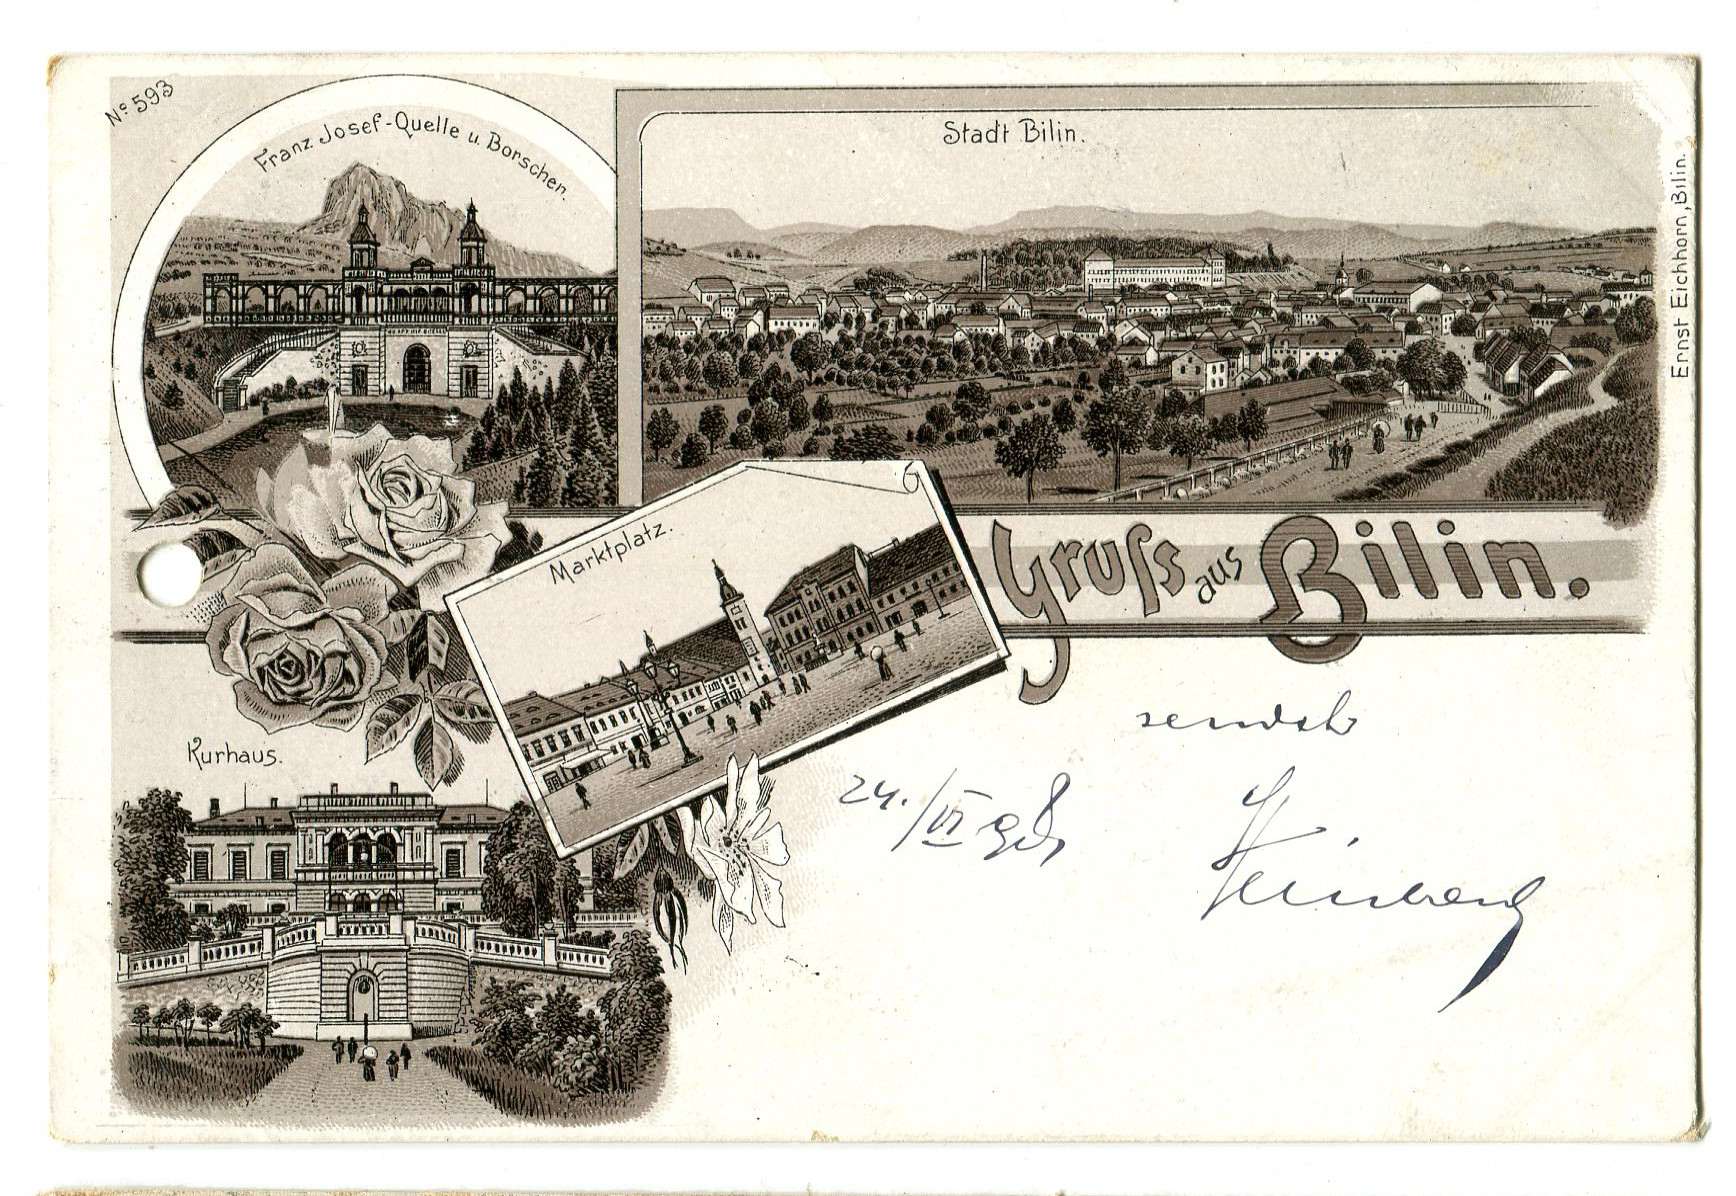 Nº 593
Franz Josef-Quelle u. Borschen.
Stadt Bilin.
Ernst Eichhorn, Bilin.
Marktplatz.
Gruss aus Bilin.
Kurhaus.
sendet
24./VI 98